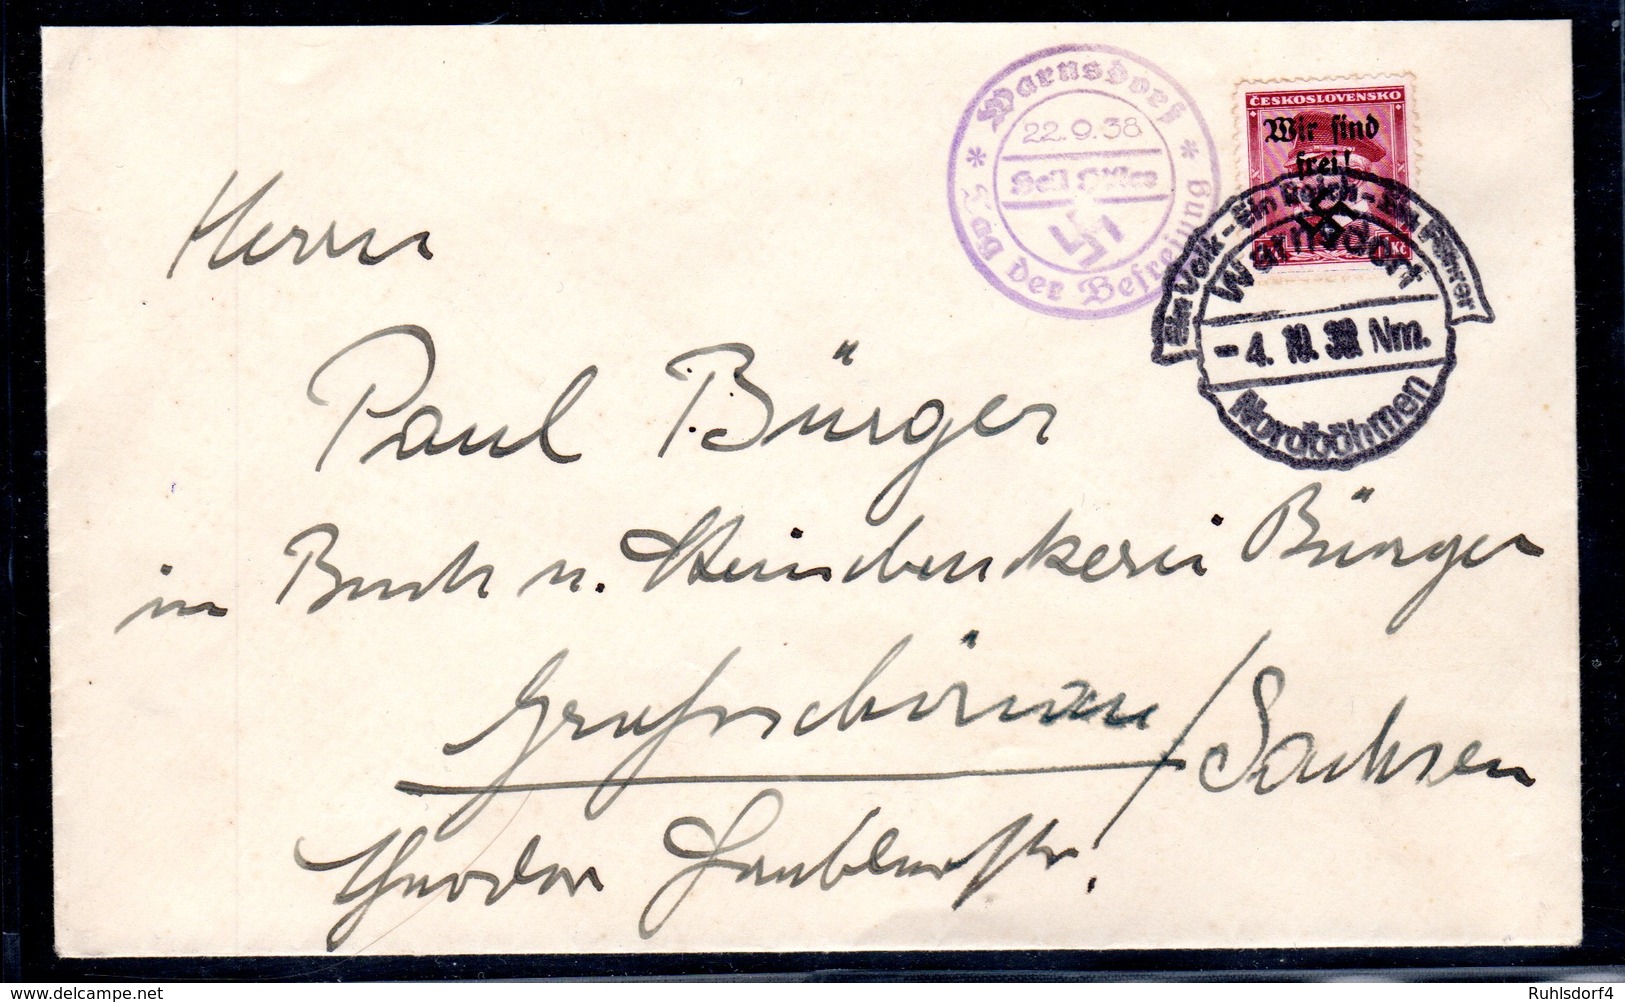 Warnsdorf
22.9.38
Heil Hitler
Tag der Befreiung
ČESKOSLOVENSKO
Wir sind
frei!
Kč
Ein Volk - Ein Reich - Ein Führer
Warnsdorf
- 4. 38 Nm.
Nordböhmen
Herrn
Paul Bürger
in Buch u. Steindruckerei Bürger
Großschönau / Sachsen
Theodor
delcampe.net
Ruhlsdorf4